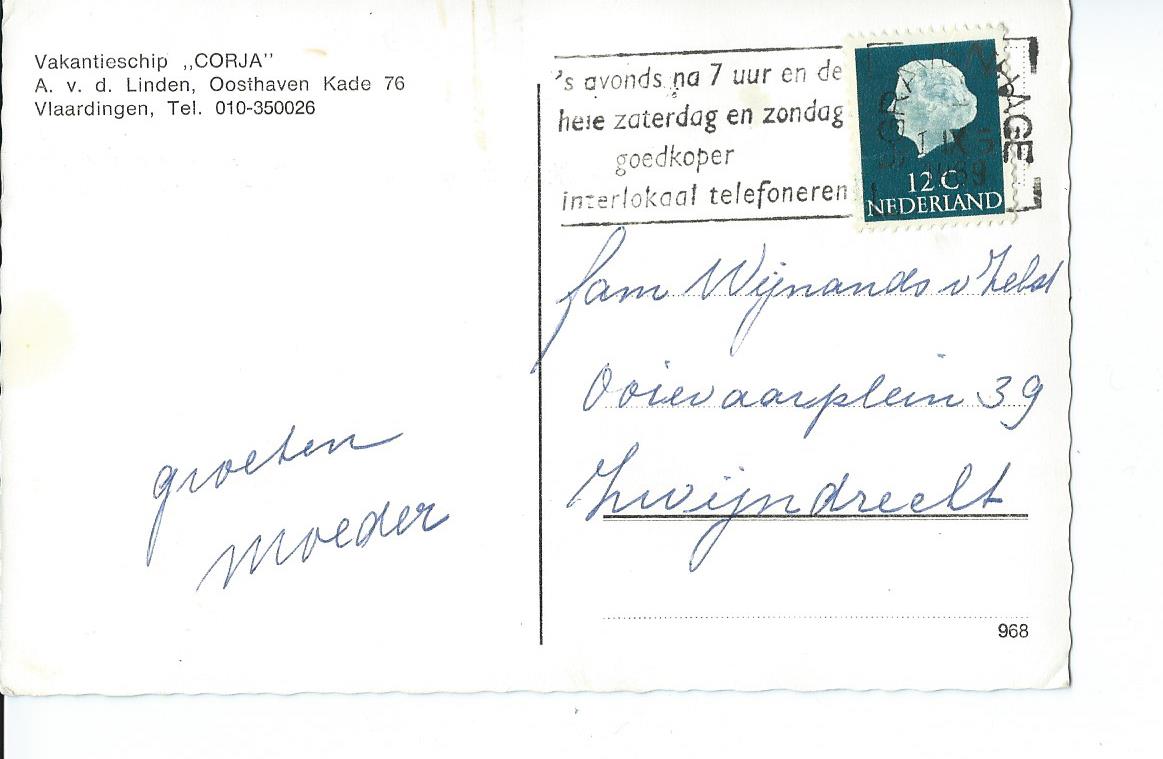 Vakantieschip ,,CORJA"
A. v. d. Linden, Oosthaven Kade 76
Vlaardingen, Tel. 010-350026
's avonds na 7 uur en de
hele zaterdag en zondag
goedkoper
interlokaal telefoneren
12 C
NEDERLAND
fam Wijnands v
Ooievaarplein 39
Zwijndrecht
groeten
moeder
968